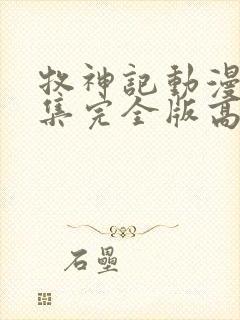 牧神記動漫
集完全版高
石壘